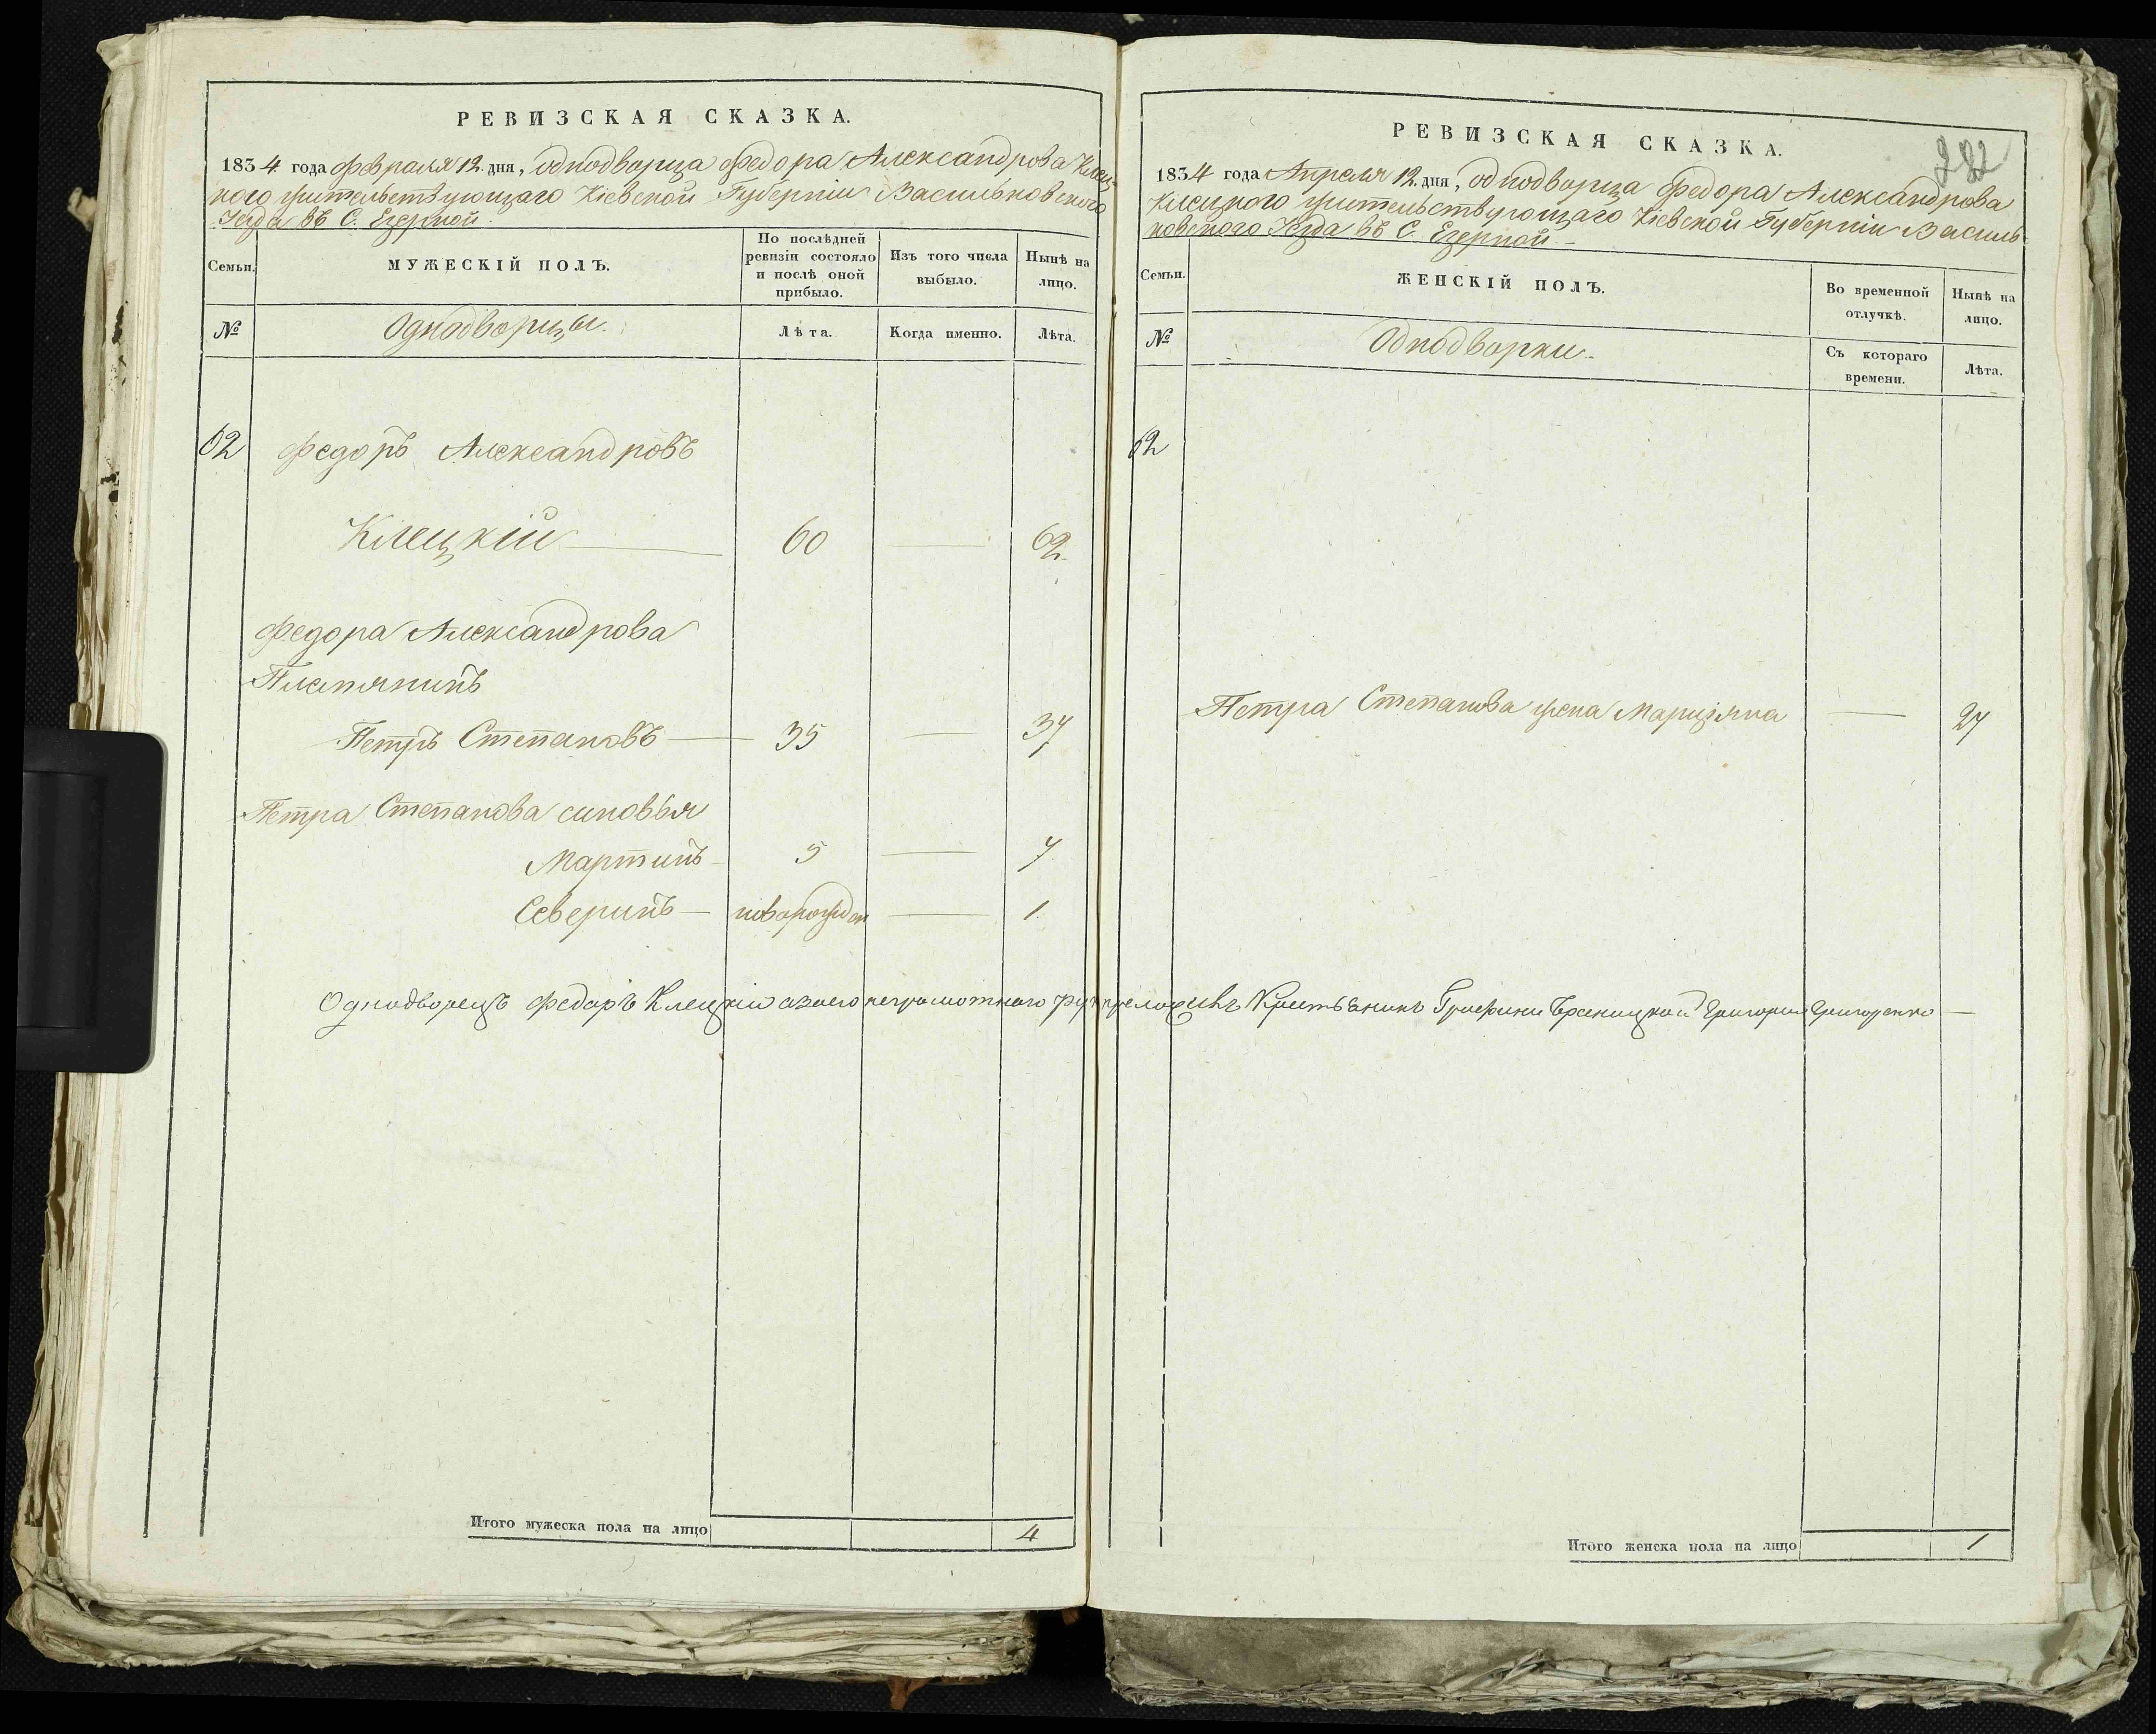 РЕВИЗСКАЯ СКАЗКА.
1834 года Февраля 12 дня, однодворца Федора Александрова Клец-
кого жительствующаго Кіевской Губерніи Васильковского
Уезда въ С. Езерной
Семьи. МУЖЕСКІЙ ПОЛЪ. По послѣдней ревизіи состояло и послѣ оной прибыло. Изъ того числа выбыло. Нынѣ на лицо.
№ Однодворцы. Лѣта. Когда именно. Лѣта.
62 Федоръ Александровъ
Клецкій — 60 — 62
Федора Александрова
Племянникъ
Петръ Степановъ — 35 — 37
Петра Степанова синовья
Мартинъ 5 — 7
Северинъ — новорожден — 1.
Однодворецъ Федоръ Клецкій а за его неграмотнаго рук приложилъ Крестьянинъ Графини Браницкой Григорий Григоренко —
Итого мужеска пола на лицо 4
282
РЕВИЗСКАЯ СКАЗКА.
1834 года Апреля 12 дня, однодворца Федора Александрова
Клецкого жительствующаго Кіевской Губерніи Василь
ковского Уезда въ С. Езерной —
Семьи. ЖЕНСКІЙ ПОЛЪ. Во временной отлучкѣ. Нынѣ на лицо.
№ Однодворки. Съ котораго времени. Лѣта.
62
Петра Степанова жена Марціяна — 27
Итого женска пола на лицо 1